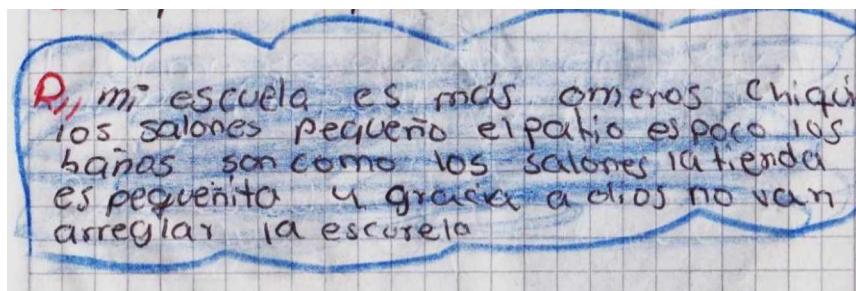 R,, mi escuela es más omeros chiqui
los salones pequeño el patio es poco los
baños son como los salones la tienda
es pequeñita y gracia a dios no van
arreglar la escurela